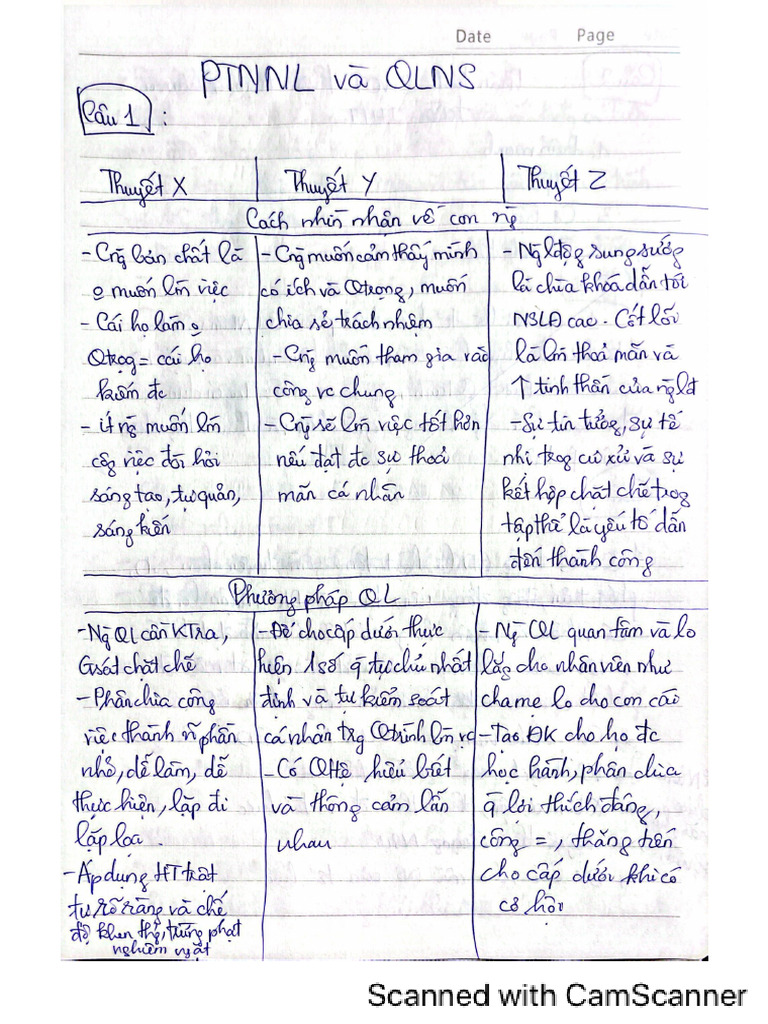 Date Page
PTNNL và QLNS
Câu 1 :
Thuyết X Thuyết Y Thuyết Z
Cách nhìn nhận về con ng
- Cng bản chất là
o muốn lm việc
- Cái họ làm o
Qtrọg = cái họ
kiếm đc
- ít ng muốn lm
côg việc đòi hỏi
sáng tạo, tự quản,
sáng kiến
- Cng muốn cảm thấy mình
có ích và Qtrọng, muốn
chia sẻ trách nhiệm
- Cng muốn tham gia vào
công vc chung
- Cng sẽ lm việc tốt hơn
nếu đạt đc sự thoả
mãn cá nhân
- Ng lđộg sung sướng
là chìa khoá dẫn tới
NSLĐ cao. Cốt lõi
là lm thoả mãn và
↑ tinh thần của ng lđ
- Sự tin tưởng, sự tế
nhị trog cư xử và sự
kết hợp chặt chẽ trog
tập thể là yếu tố dẫn
đến thành công
Phương pháp QL
- Ng QL cần KTra,
Gsát chặt chẽ
- Phân chia công
việc thành n phần
nhỏ, dễ làm, dễ
thực hiện, lặp đi
lặp lại.
- Áp dụng HT trật
tự rõ ràng và chế
độ khen thg, trừng phạt
nghiêm ngặt
- Để cho cấp dưới thực
hiện 1 số q tự chủ nhất
định và tự kiểm soát
cá nhân trg Qtrình lm vc
- Có QHệ hiểu biết
và thông cảm lẫn
nhau
- Ng QL quan tâm và lo
lắng cho nhân viên như
cha mẹ lo cho con cái
- Tạo ĐK cho họ đc
học hành, phân chia
q lợi thích đáng,
công =, thăng tiến
cho cấp dưới khi có
cơ hội
Scanned with CamScanner